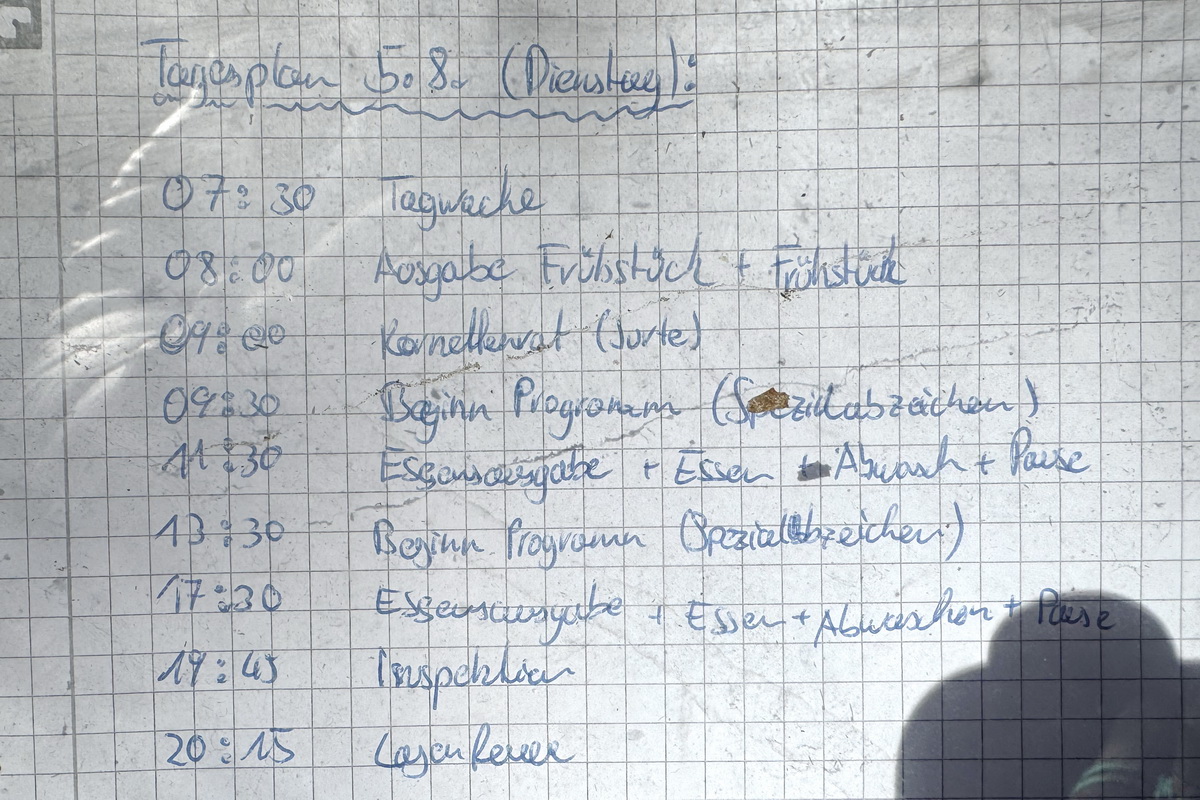 Tagesplan 5.8. (Dienstag):
07:30 Tagwache
08:00 Ausgabe Frühstück + Frühstück
09:00 Kornettenrat (Jurte)
09:30 Beginn Programm (Spezialabzeichen)
11:30 Essensausgabe + Essen + Abwasch + Pause
13:30 Beginn Programm (Spezialabzeichen)
17:30 Essensausgabe + Essen + Abwaschen + Pause
19:45 Inspektion
20:15 Lagerfeuer